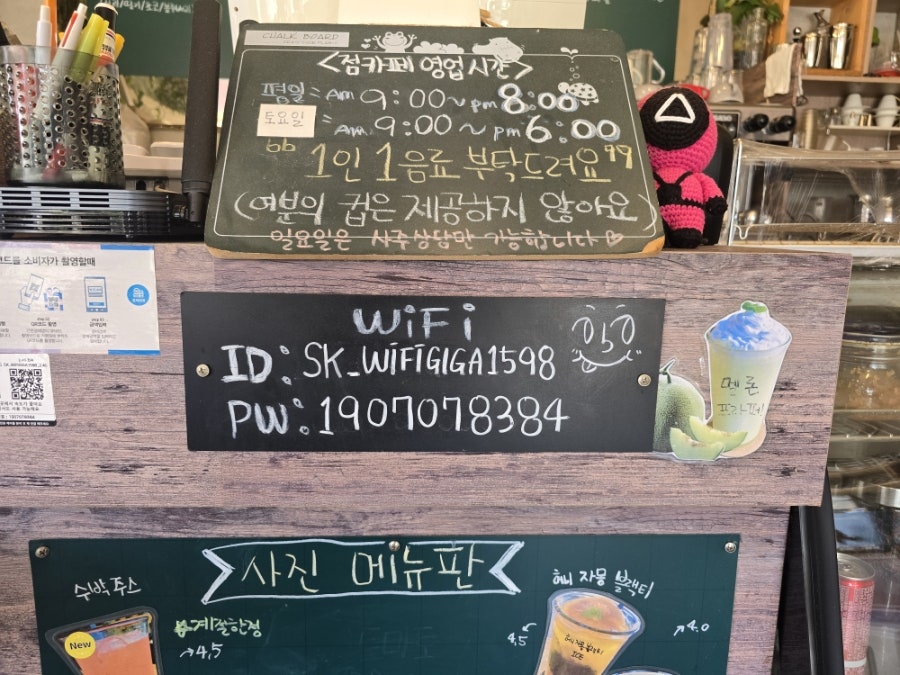 CHALK BOARD
<점카페 영업시간>
평일 = Am 9:00~pm 8:00
토요일 = Am 9:00~pm 6:00
"1인 1음료 부탁드려요"
(여분의 컵은 제공하지 않아요)
일요일은 사주상담만 가능합니다♡
코드를 소비자가 촬영할때
WiFi
ID: SK_WiFiGIGA1598
PW: 1907078384
멜론
프라페
사진 메뉴판
수박주스
New
계절한정
4,5
허니 자몽 블랙티
4.5
4.0
ICE